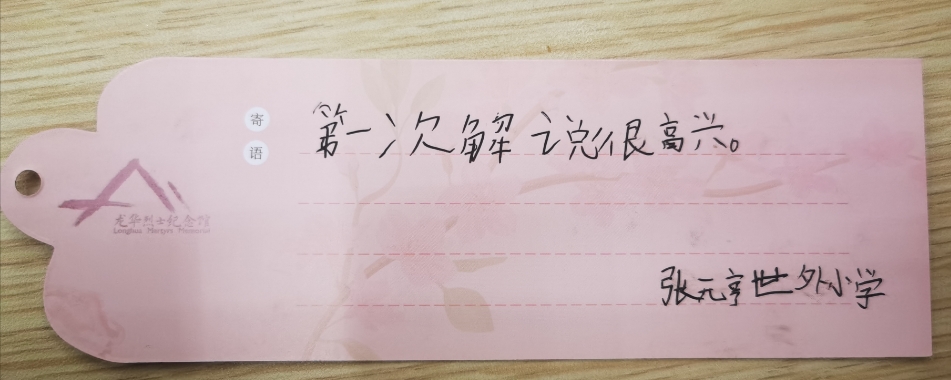 寄语
第一次解说很高兴。
龙华烈士纪念馆
Longhua Martyrs Memorial
张元亨世外小学